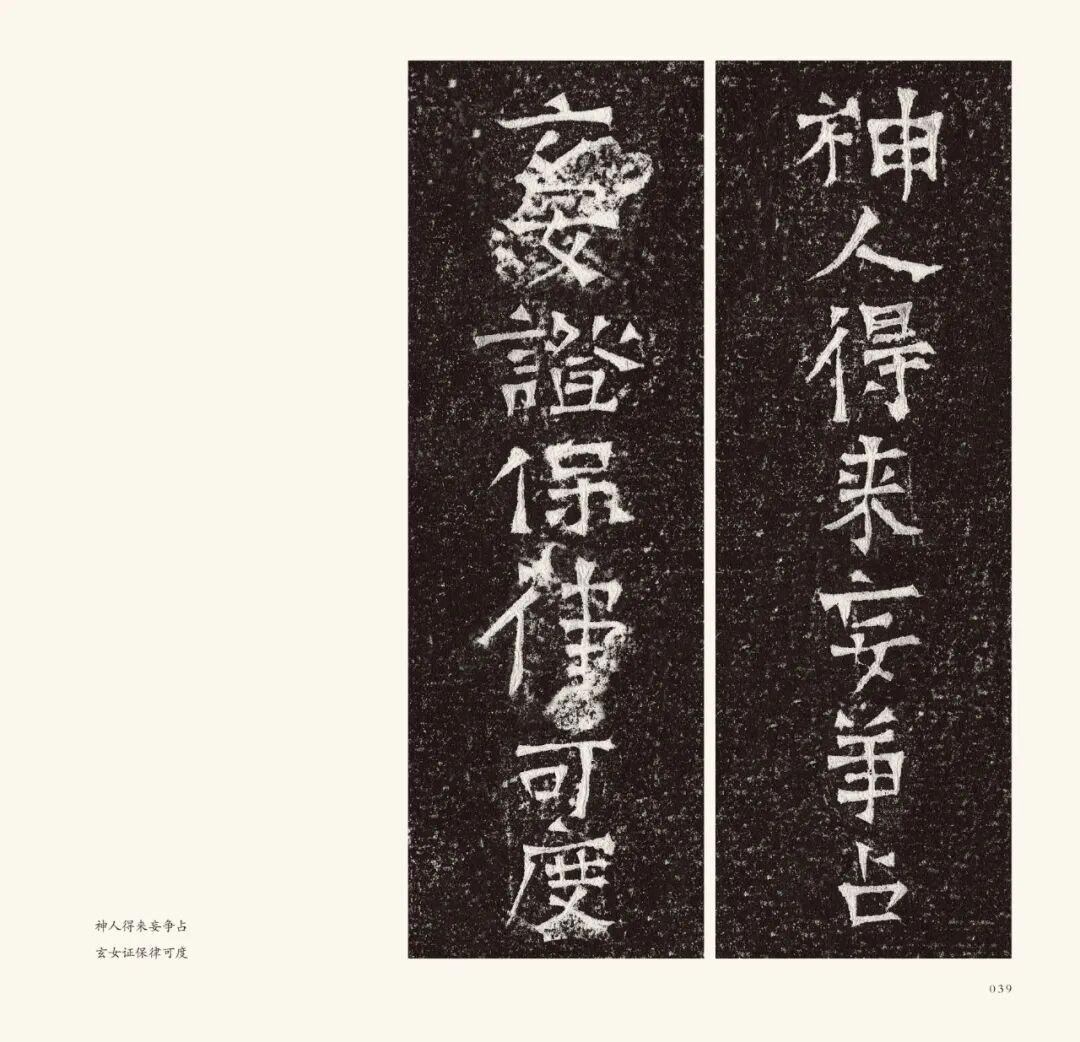 神人得来妄争占
玄女證保律可度
神人得来妄争占
玄女证保律可度
039